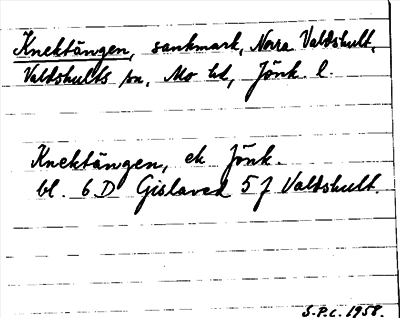 Knektängen, sankmark, Norra Valdshult,
Valdshults sn, Mo hd, Jönk. l.
Knektängen, ek Jönk.
bl. 6 D Gislaved 5 J Valdshult.
S.P.C. 1958.